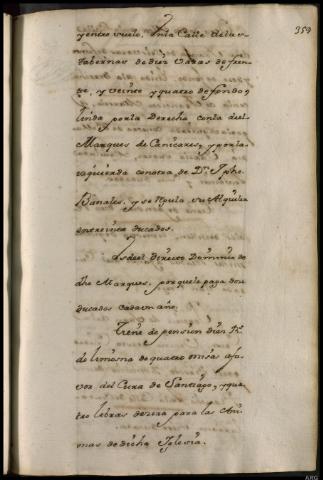 359
y entresuelo, en la Calle de las
tabernas de diez Varas de fren-
te, y veinte y quatro de fondo,
linda por la Derecha con la del
Marques de Canicares, y por la
izquierda con otra de Dn. Jphe
Banales, y se regula su Alquiler
en treinta ducados.
Es del Directo Dominio de
dho Marques, porque le paga dos
ducados cada un año.
Tiene de pension diez Rs.
de limosna de quatro misas a fa-
vor del Cura de Santiago, y qua-
tro libras de zera para las Áni-
mas de dicha Iglesia.
ARG